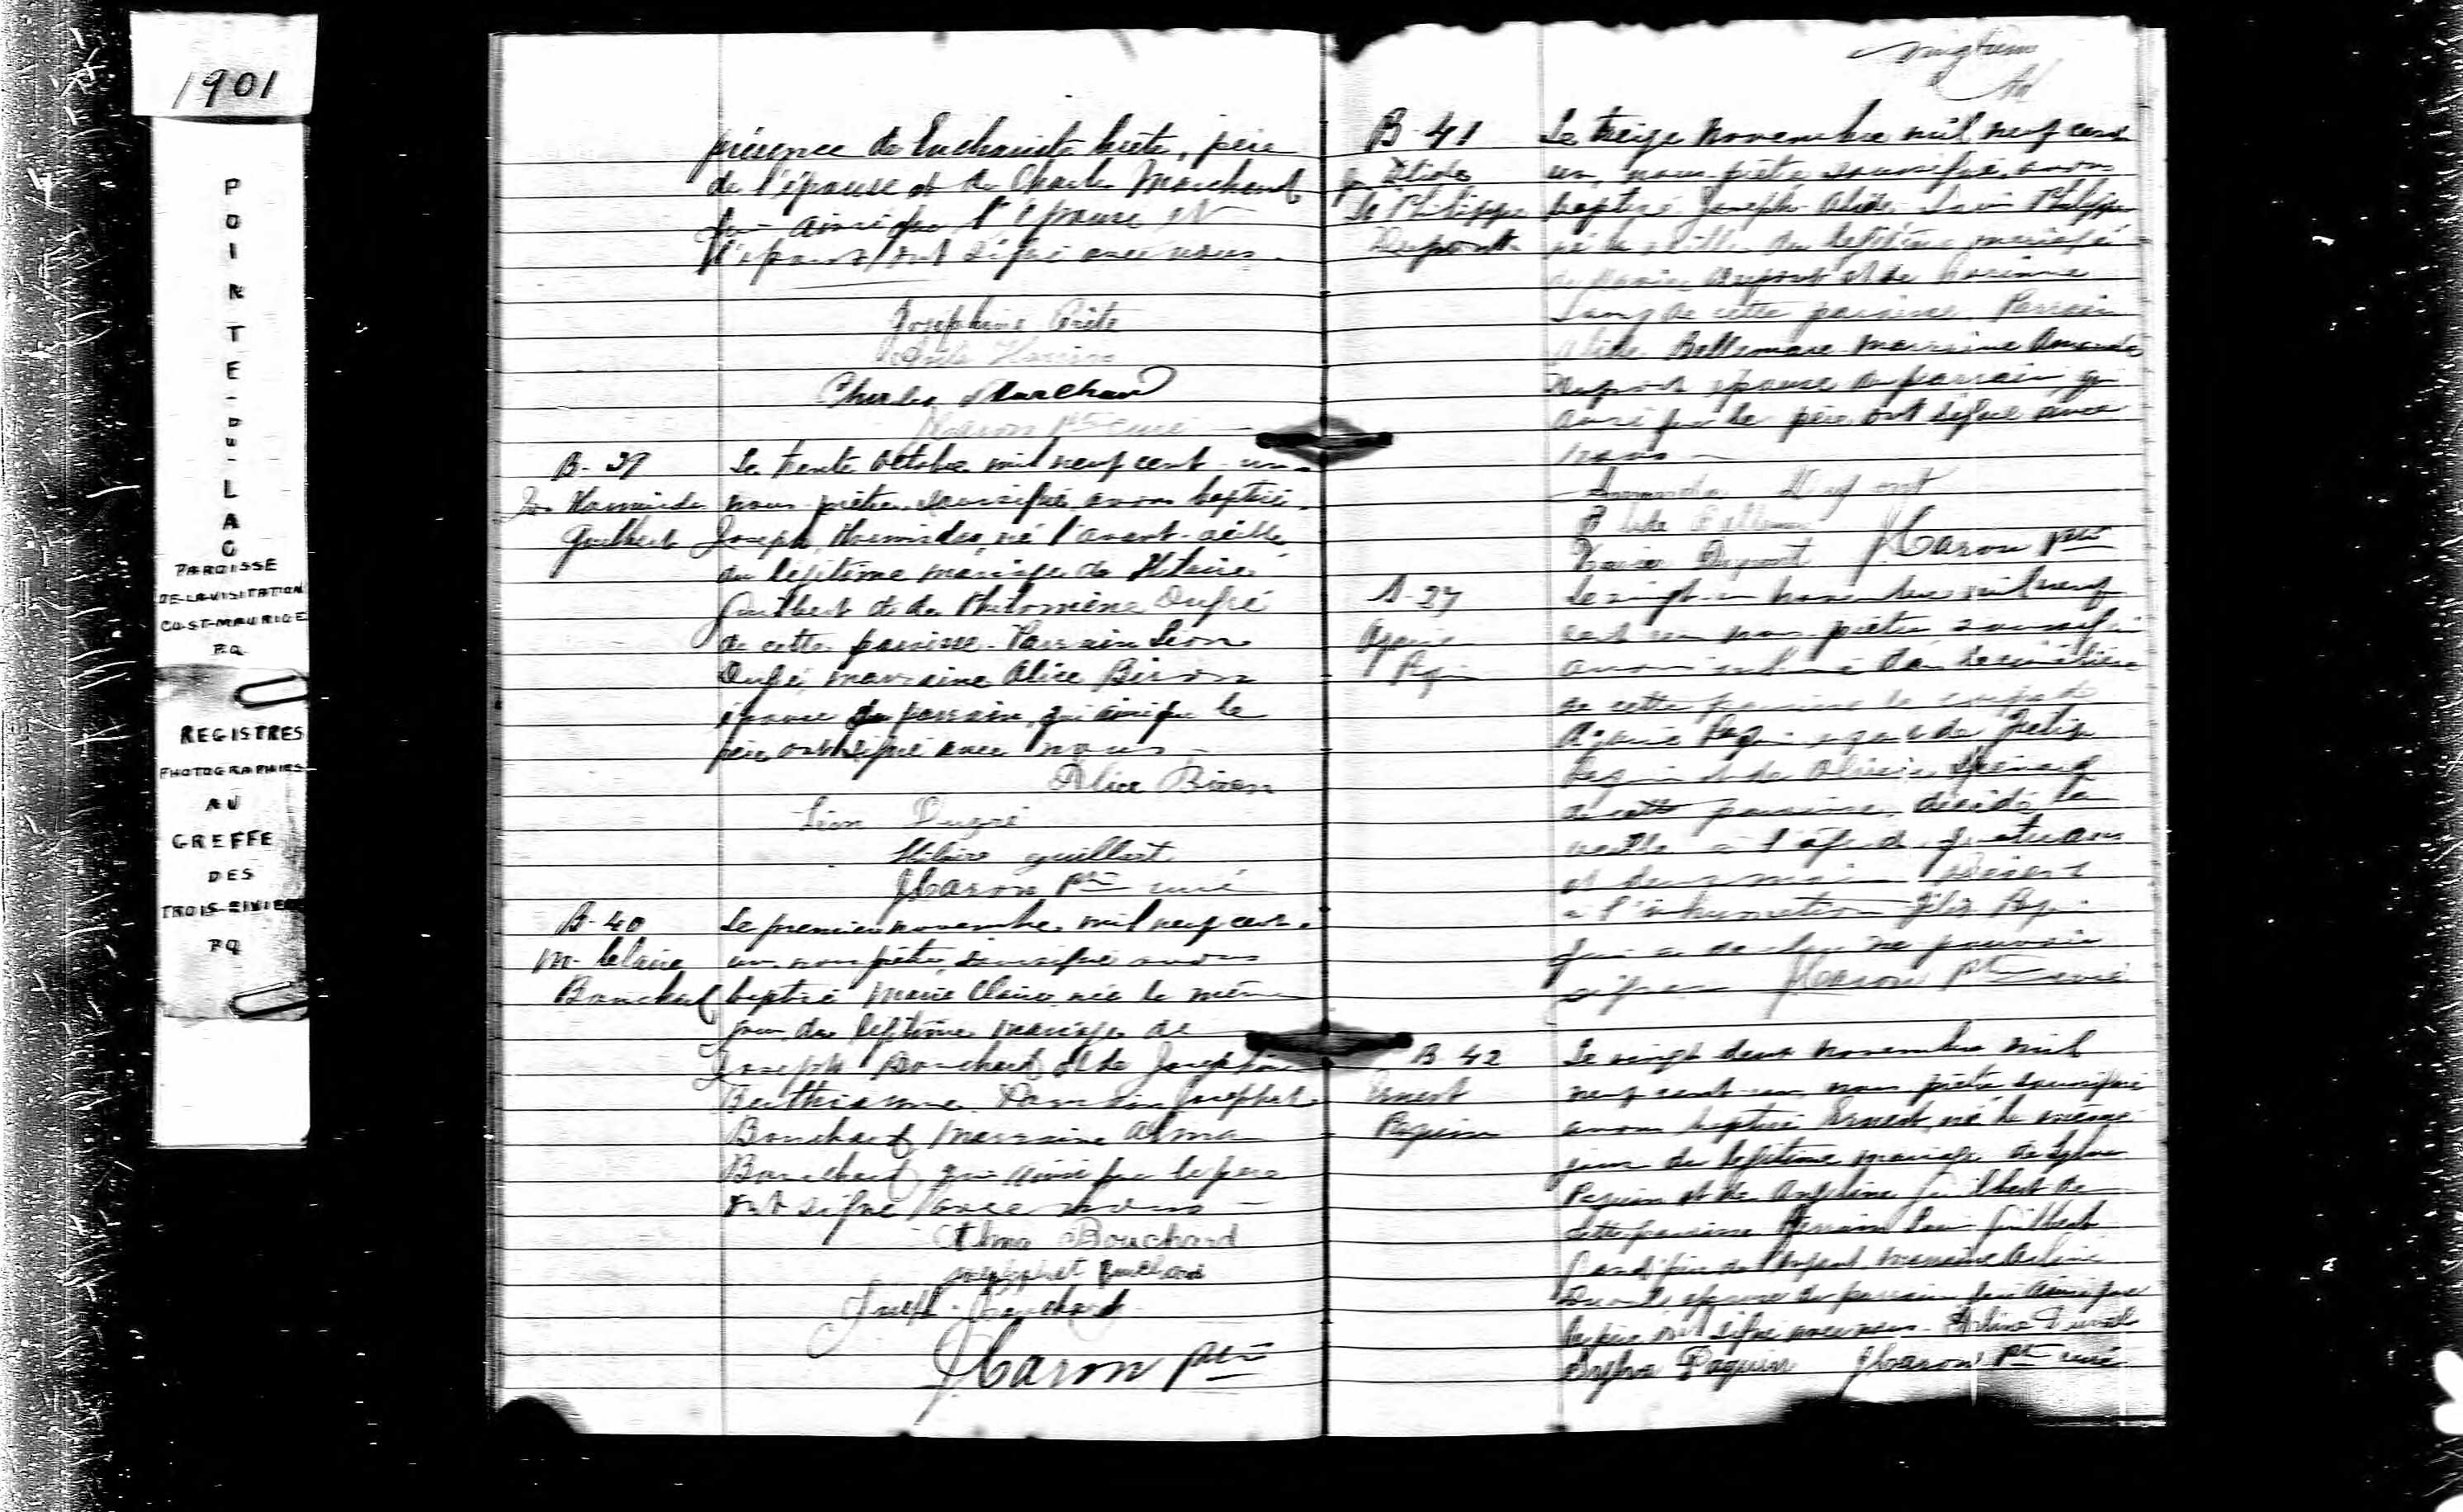 1901
POINTE-DU-LAC
PAROISSE
DE-LA-VISITATION
CO-ST-MAURICE
P.Q.
REGISTRES
PHOTOGRAPHIES
AU
GREFFE
DES
TROIS-RIVIERES
PQ
présence de Eucharista Crête, père
de l'épouse et de Charles Marchand
qui ainsi que l'épouse et
l'époux ont signé avec nous.
Josephine Crête
Charles Marchand
Caron Ptre curé
B-39
Jos Hormidas
Guilbert
Le trente octobre mil neuf cent-un
nous prêtre soussigné avons baptisé
Joseph Hormidas, né l'avant-veille
du légitime mariage de Hilaire
Guilbert et de Philomène Dugré
de cette paroisse. Parrain Léon
Dugré, marraine Alice Biron
épouse du parrain, qui ainsi que le
père ont signé avec nous.-
Alice Biron
Léon Dugré
Hilaire guilbert
J Caron Ptre curé
B-40
M-Claire
Bouchard
Le premier novembre mil neuf cent
un nous prêtre soussigné avons
baptisé Marie Claire née le même
jour du légitime mariage de
Joseph Bouchard et de Josephine
Berthiaume. Parrain Josephat
Bouchard marraine Alma
Bouchard qui ainsi que le père
ont signé avec nous -
Alma Bouchard
Josephat Bouchard
Joseph Bouchard
J Caron Ptre
B-41
Jos Elide
Ls Philippe
Dupont
Le treize novembre mil neuf cent
un, nous prêtre soussigné, avons
baptisé Joseph Elide Louis Philippe
né la veille du légitime mariage
de Xavier Dupont et de
de cette paroisse. Parrain
Elide Bellemare marraine Amanda
Dupont épouse du parrain qui
ainsi que le père ont signé avec
nous -
Amanda Dupont
Elide Bellemare
Xavier Dupont J. Caron Ptre
S-27
Le vingt-un novembre mil neuf
cent un nous prêtre soussigné
avons inhumé dans le cimetière
de cette paroisse le corps de
de cette paroisse, décédé la
veille à l'âge de quatre ans
et deux mois Présent
à l'inhumation
qui a déclaré ne pouvoir
signer J Caron Ptre curé
B-42
Ernest
Paquin
Le vingt deux novembre mil
neuf cent-un nous prêtre soussigné
avons baptisé Ernest, né le même
jour du légitime mariage de Sylva
Paquin et de Angelina Guilbert de
cette paroisse Parrain Louis Guilbert
grand père de l'enfant, marraine
épouse du parrain qui ainsi que
le père ont signé avec nous.
Sylva Paquin J Caron Ptre curé